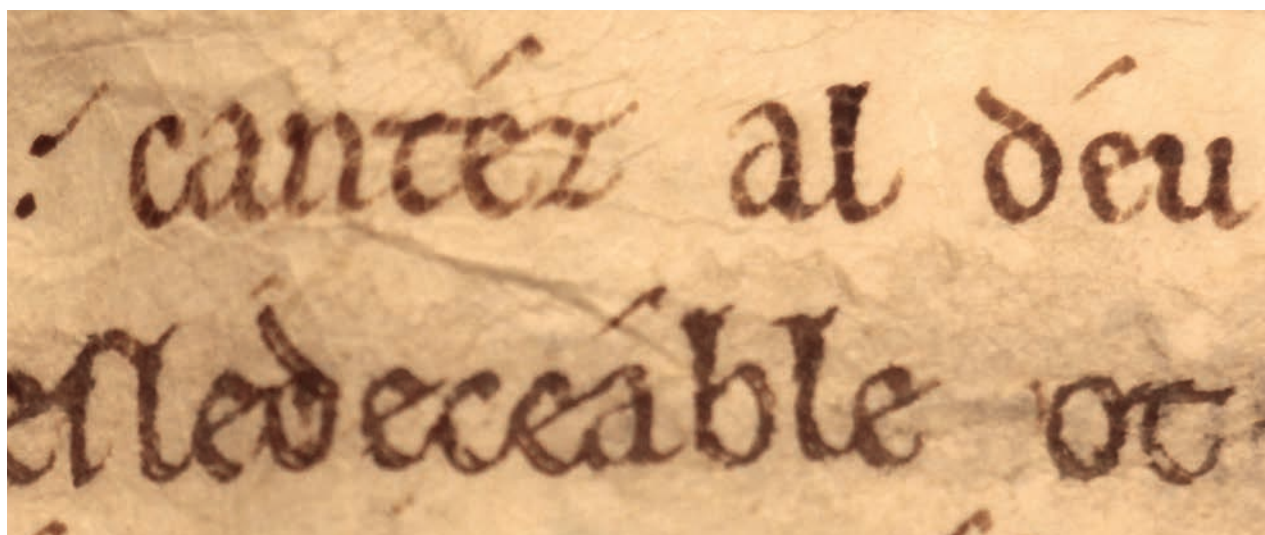 : cantéz al déu
esledeceáble ot